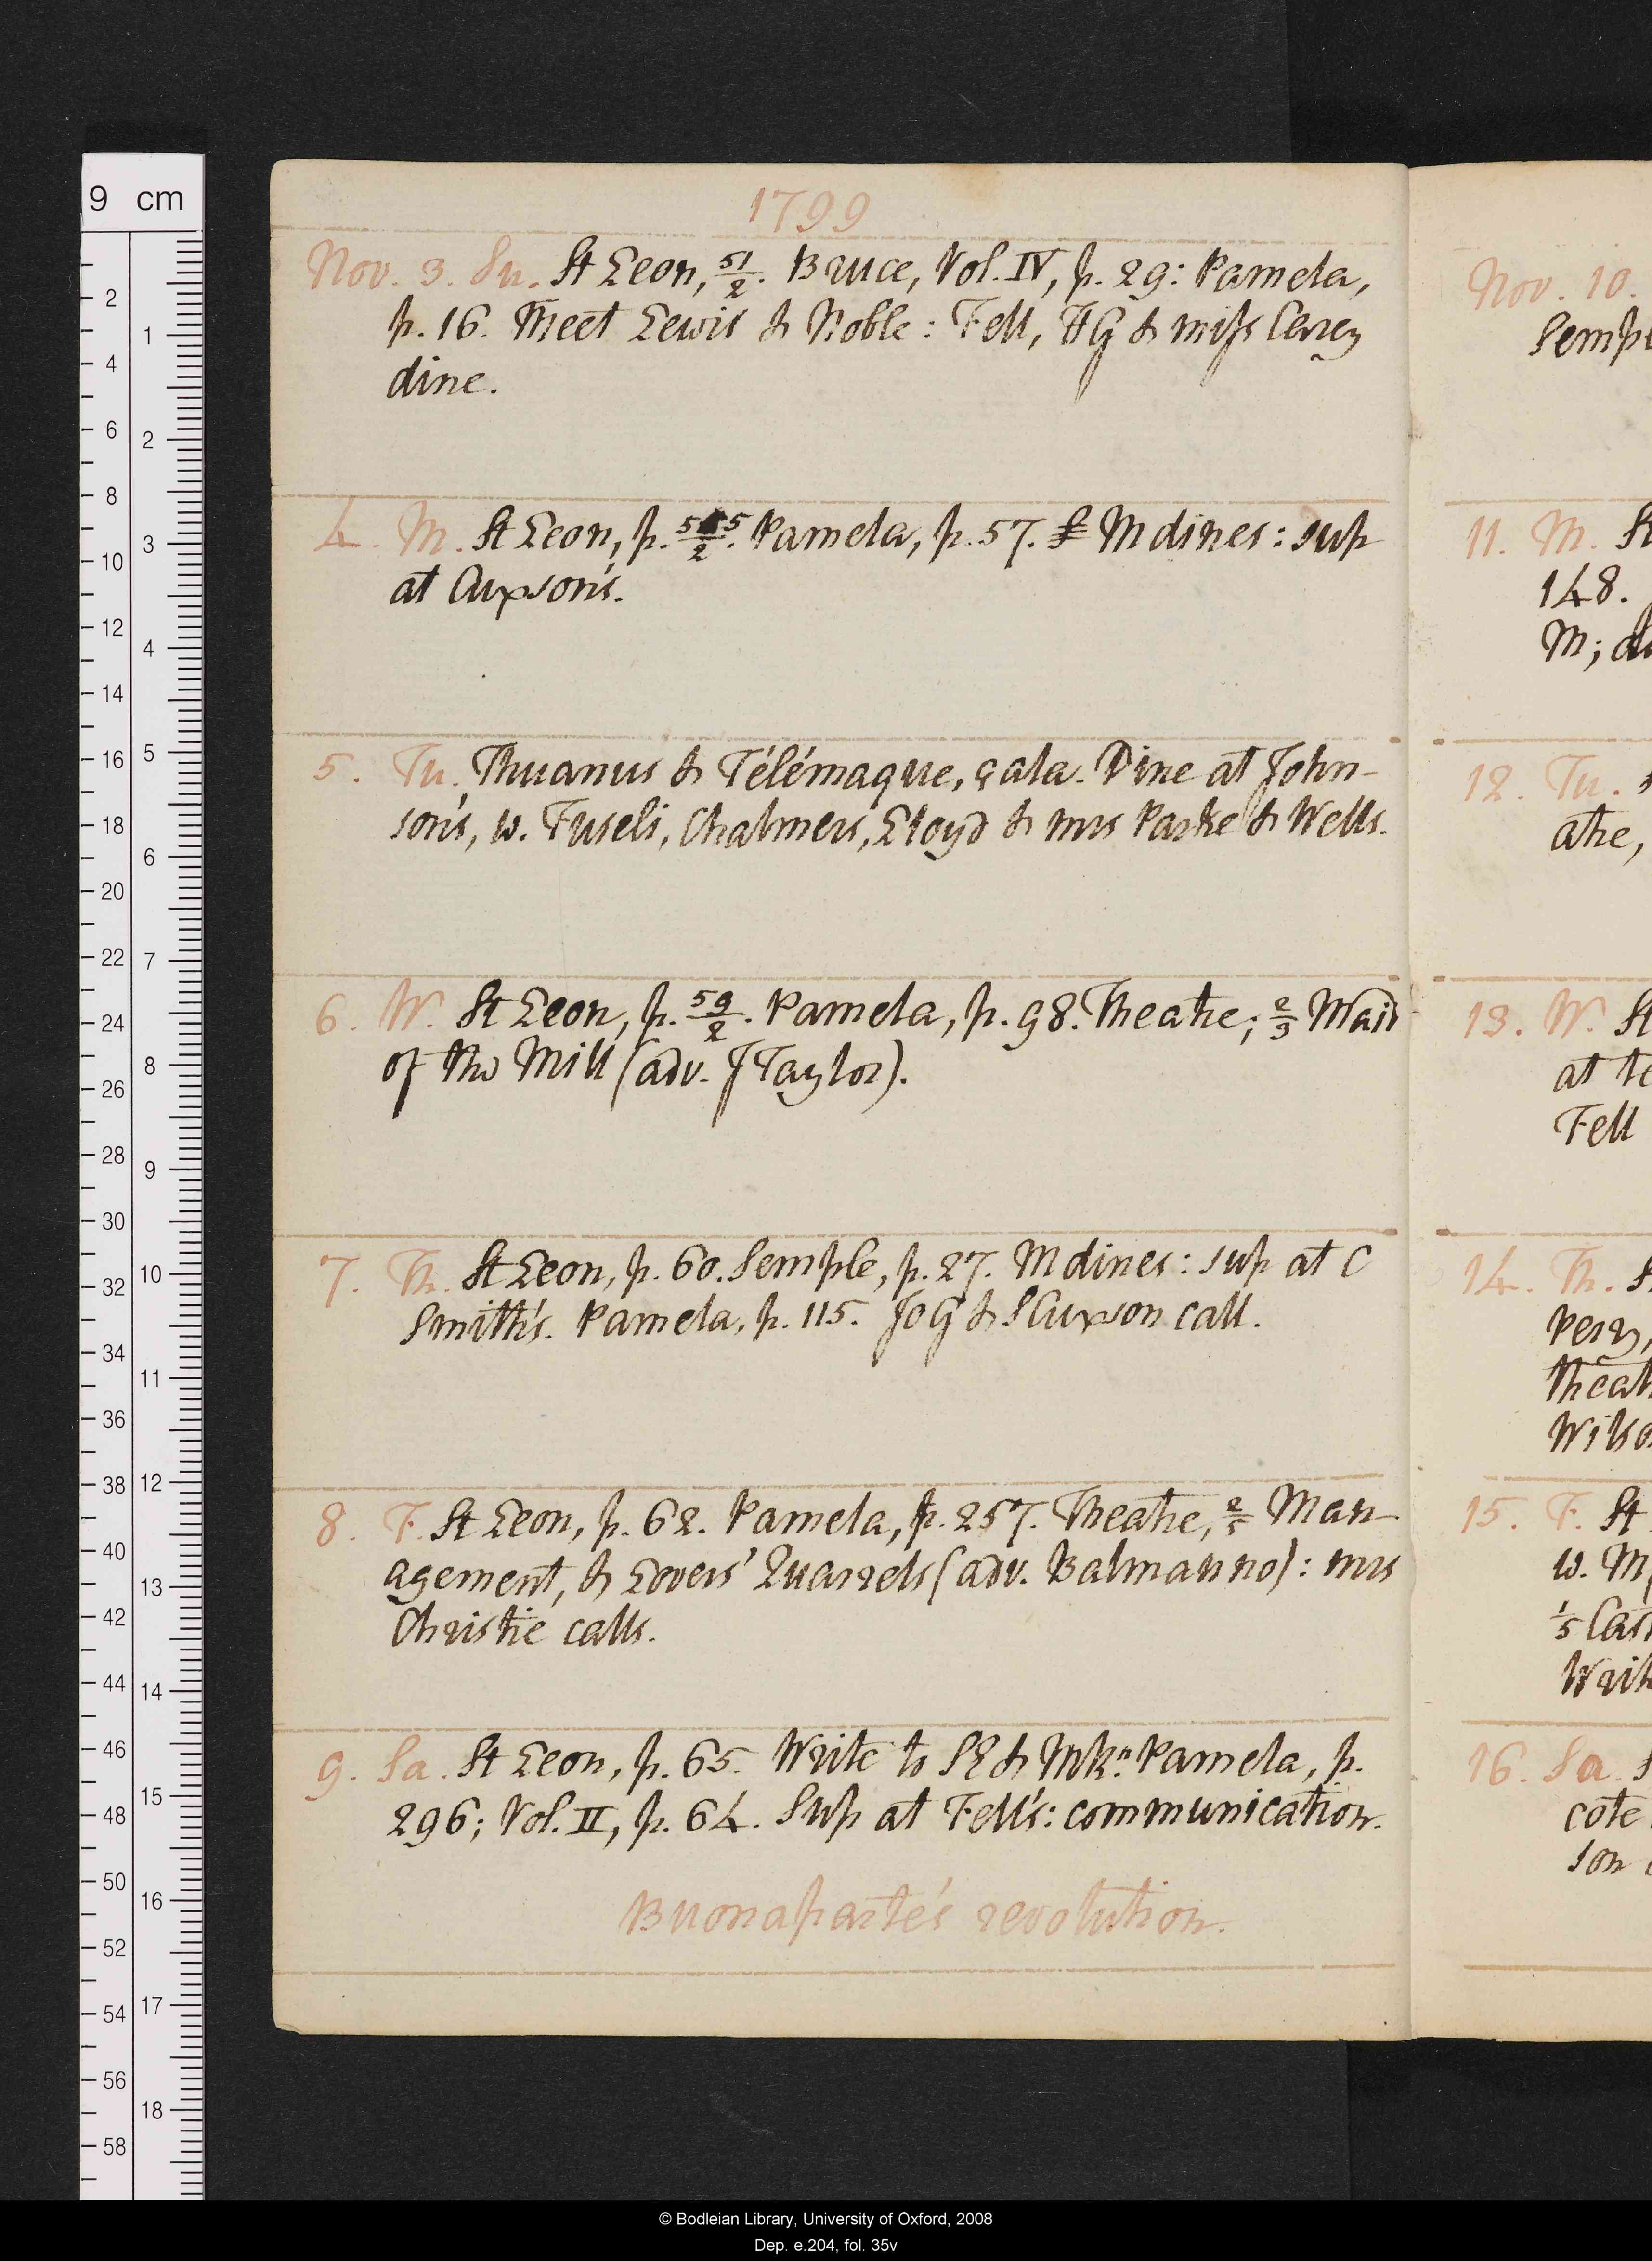 1799
Nov. 3. Su. St Leon, 51/2. Bruce, Vol. IV, p. 29: Pamela,
p. 16. Meet Lewis & Noble: Fell, HG & miss Carey
dine.
4. M. St Leon, p. 55/2. Pamela, p. 57. M dines: sup
at Cuxson's.
5. Tu. Thuanus & Télémaque, çala. Dine at John-
son's, w. Fuseli, Chalmers, Lloyd & mrs Parke & Wells.
6. W. St Leon, p. 59/2. Pamela, p. 98. Theatre; 2/3 Maid
of the Mill (adv. J Taylor).
7. Th. St Leon, p. 60. Semple, p. 27. M dines: sup at C
Smith's. Pamela, p. 115. JoG & S Cuxson call.
8. F. St Leon, p. 62. Pamela, p. 257. Theatre, 2/5 Man-
agement, & Lovers' Quarrels (adv. Balmanno): mrs
Christie calls.
9. Sa. St Leon, p. 65. Write to SE & Mkn. Pamela, p.
296; Vol. II, p. 64. Sup at Fell's: communication.
Buonaparte's revolution.
Nov. 10.
11. M. St
148.
M;
12. Tu.
atre,
13. W. St
at te
Fell
14. Th. S
Perry,
theat
Wilso
15. F. St
w. M
1/5 Cas
Write
16. Sa. S
cote
son
9 cm
2
4
6
8
10
12
14
16
18
20
22
24
26
28
30
32
34
36
38
40
42
44
46
48
50
52
54
56
58
1
2
3
4
5
6
7
8
9
10
11
12
13
14
15
16
17
18
© Bodleian Library, University of Oxford, 2008
Dep. e.204, fol. 35v